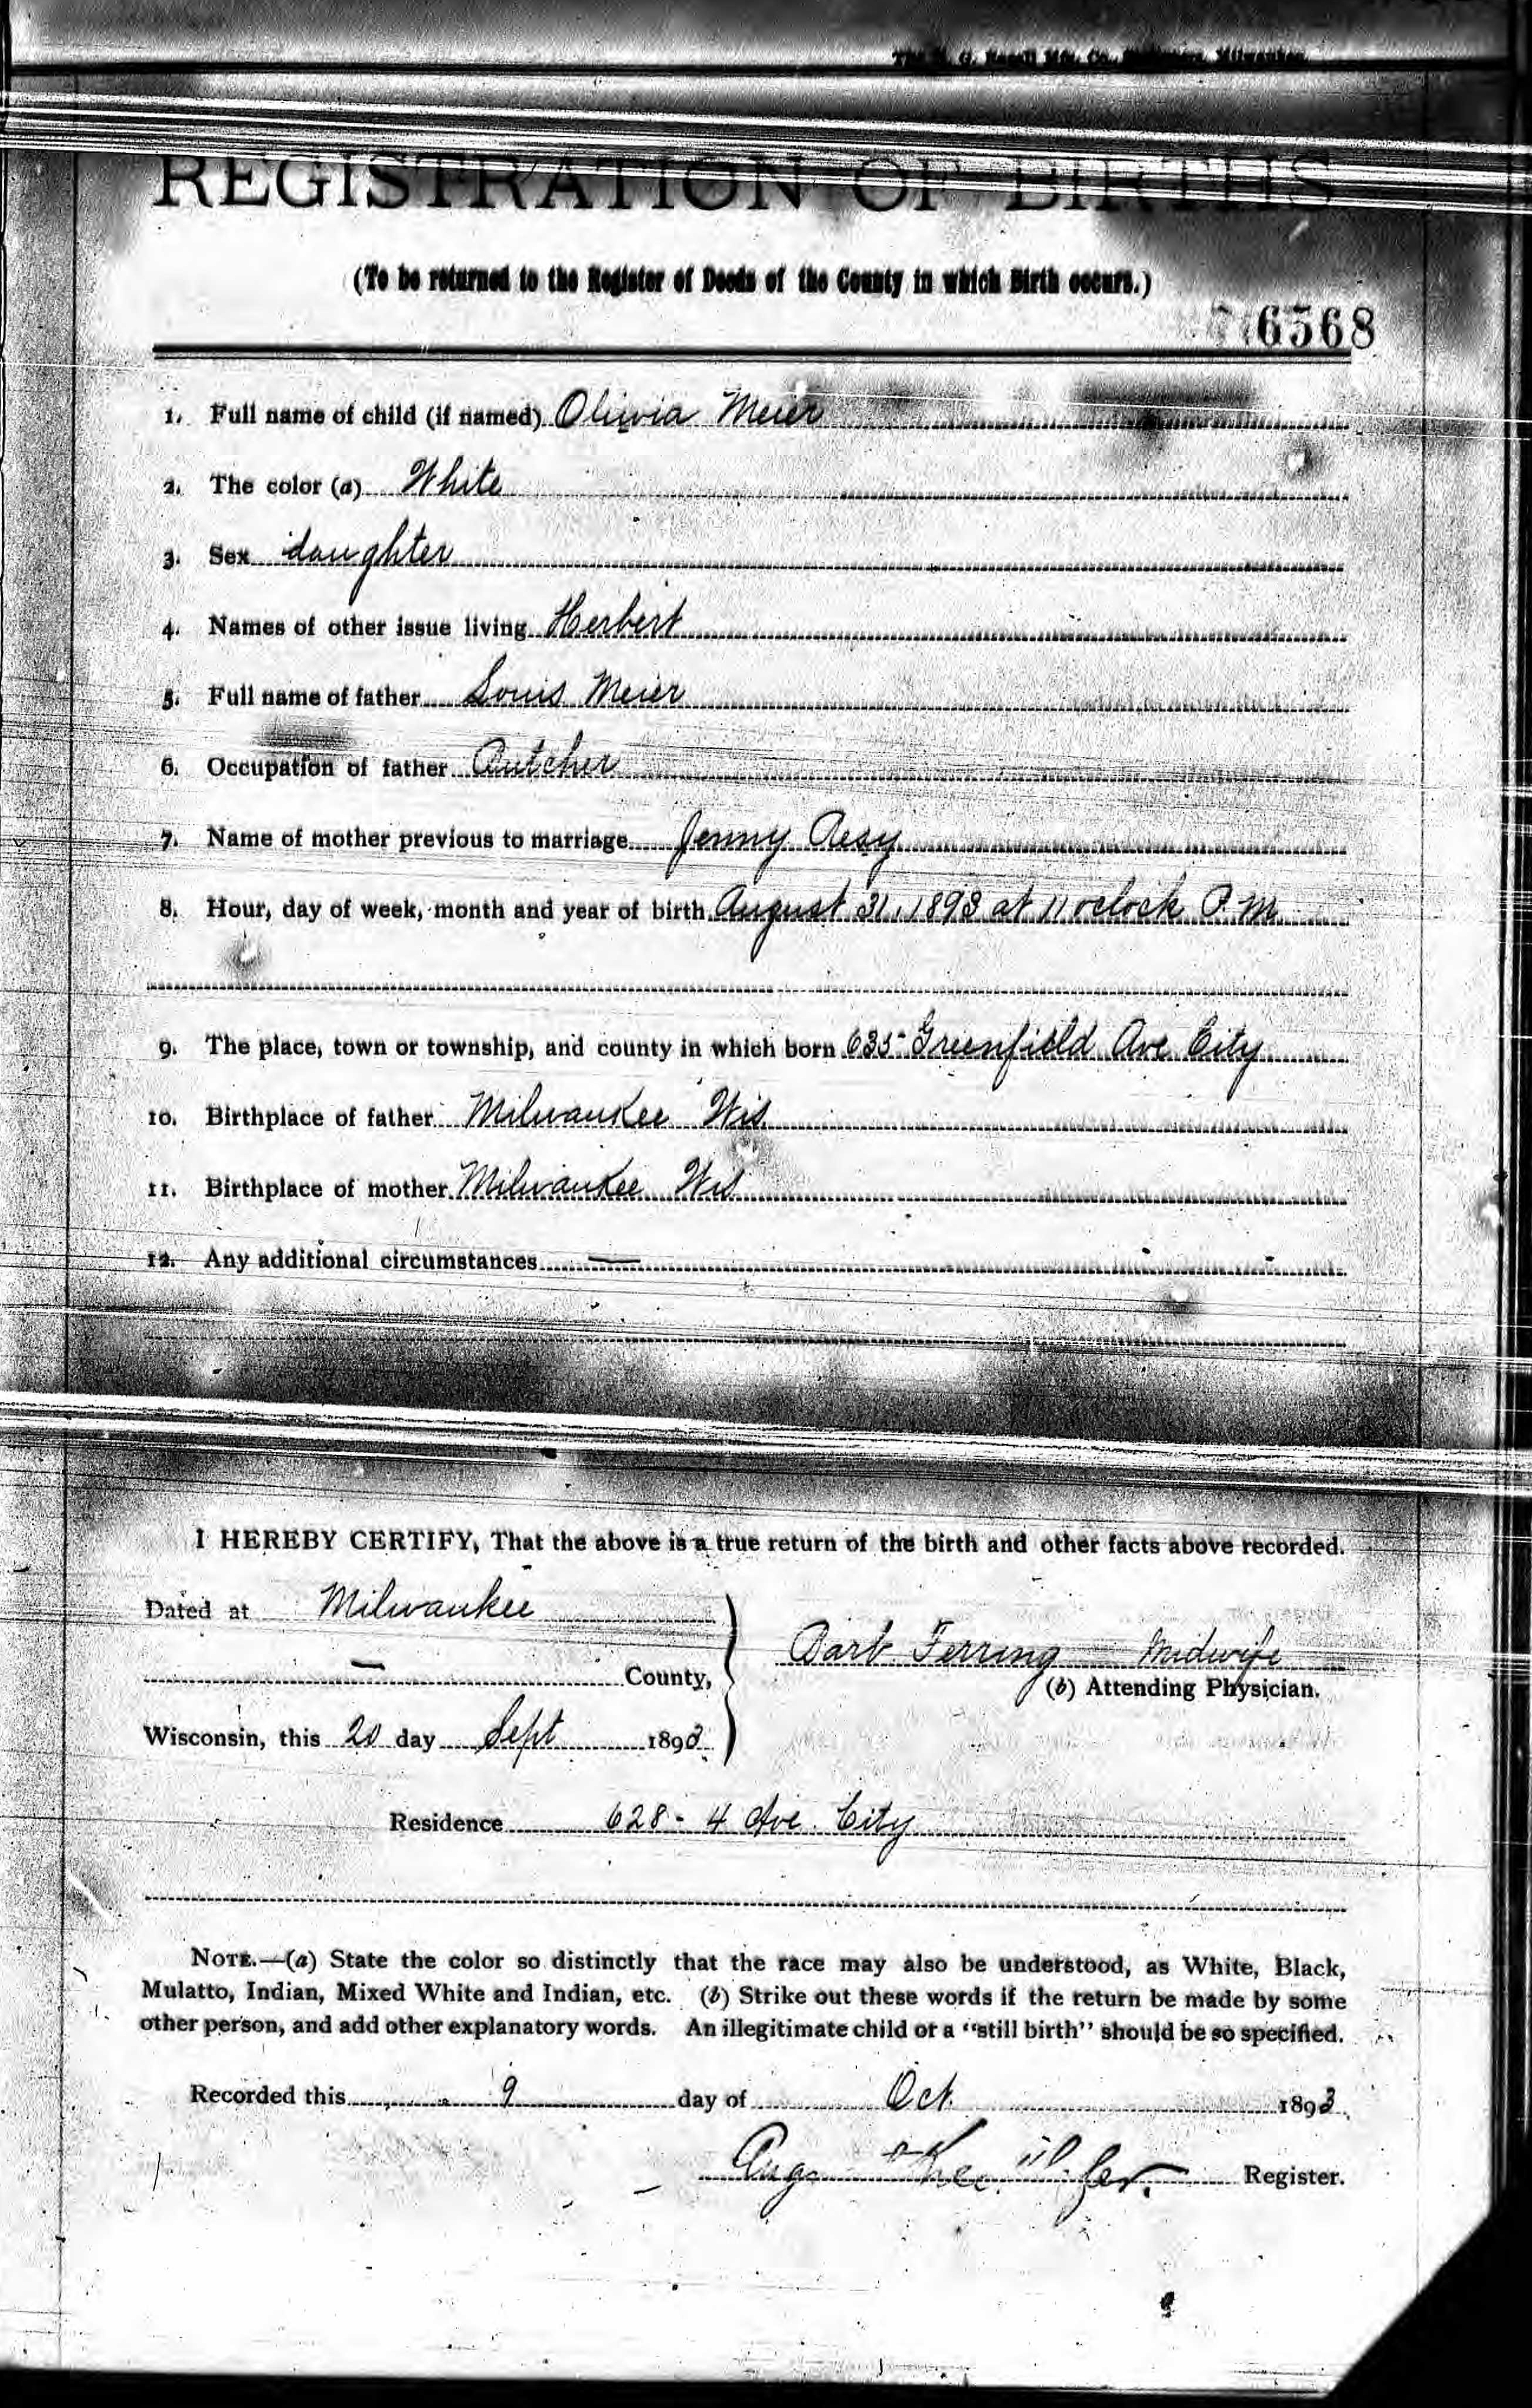 REGISTRATION OF BIRTHS
(To be returned to the Register of Deeds of the County in which Birth occurs.)
6568
1. Full name of child (if named) Olivia Meier
2. The color (a) White
3. Sex daughter
4. Names of other issue living Herbert
5. Full name of father Louis Meier
6. Occupation of father Butcher
7. Name of mother previous to marriage Jenny
8. Hour, day of week, month and year of birth August 31, 1893 at 11 oclock P.M
9. The place, town or township, and county in which born 635 Greenfield Ave City
10. Birthplace of father Milwaukee Wis
11. Birthplace of mother Milwaukee Wis
12. Any additional circumstances —
I HEREBY CERTIFY, That the above is a true return of the birth and other facts above recorded.
Dated at Milwaukee
Barb Ferring Midwife
— County,
(b) Attending Physician.
Wisconsin, this 20 day Sept 1893
Residence 628 - 4 Ave. City
NOTE.—(a) State the color so distinctly that the race may also be understood, as White, Black,
Mulatto, Indian, Mixed White and Indian, etc. (b) Strike out these words if the return be made by some
other person, and add other explanatory words. An illegitimate child or a "still birth" should be so specified.
Recorded this 9 day of Oct. 1893.
Register.